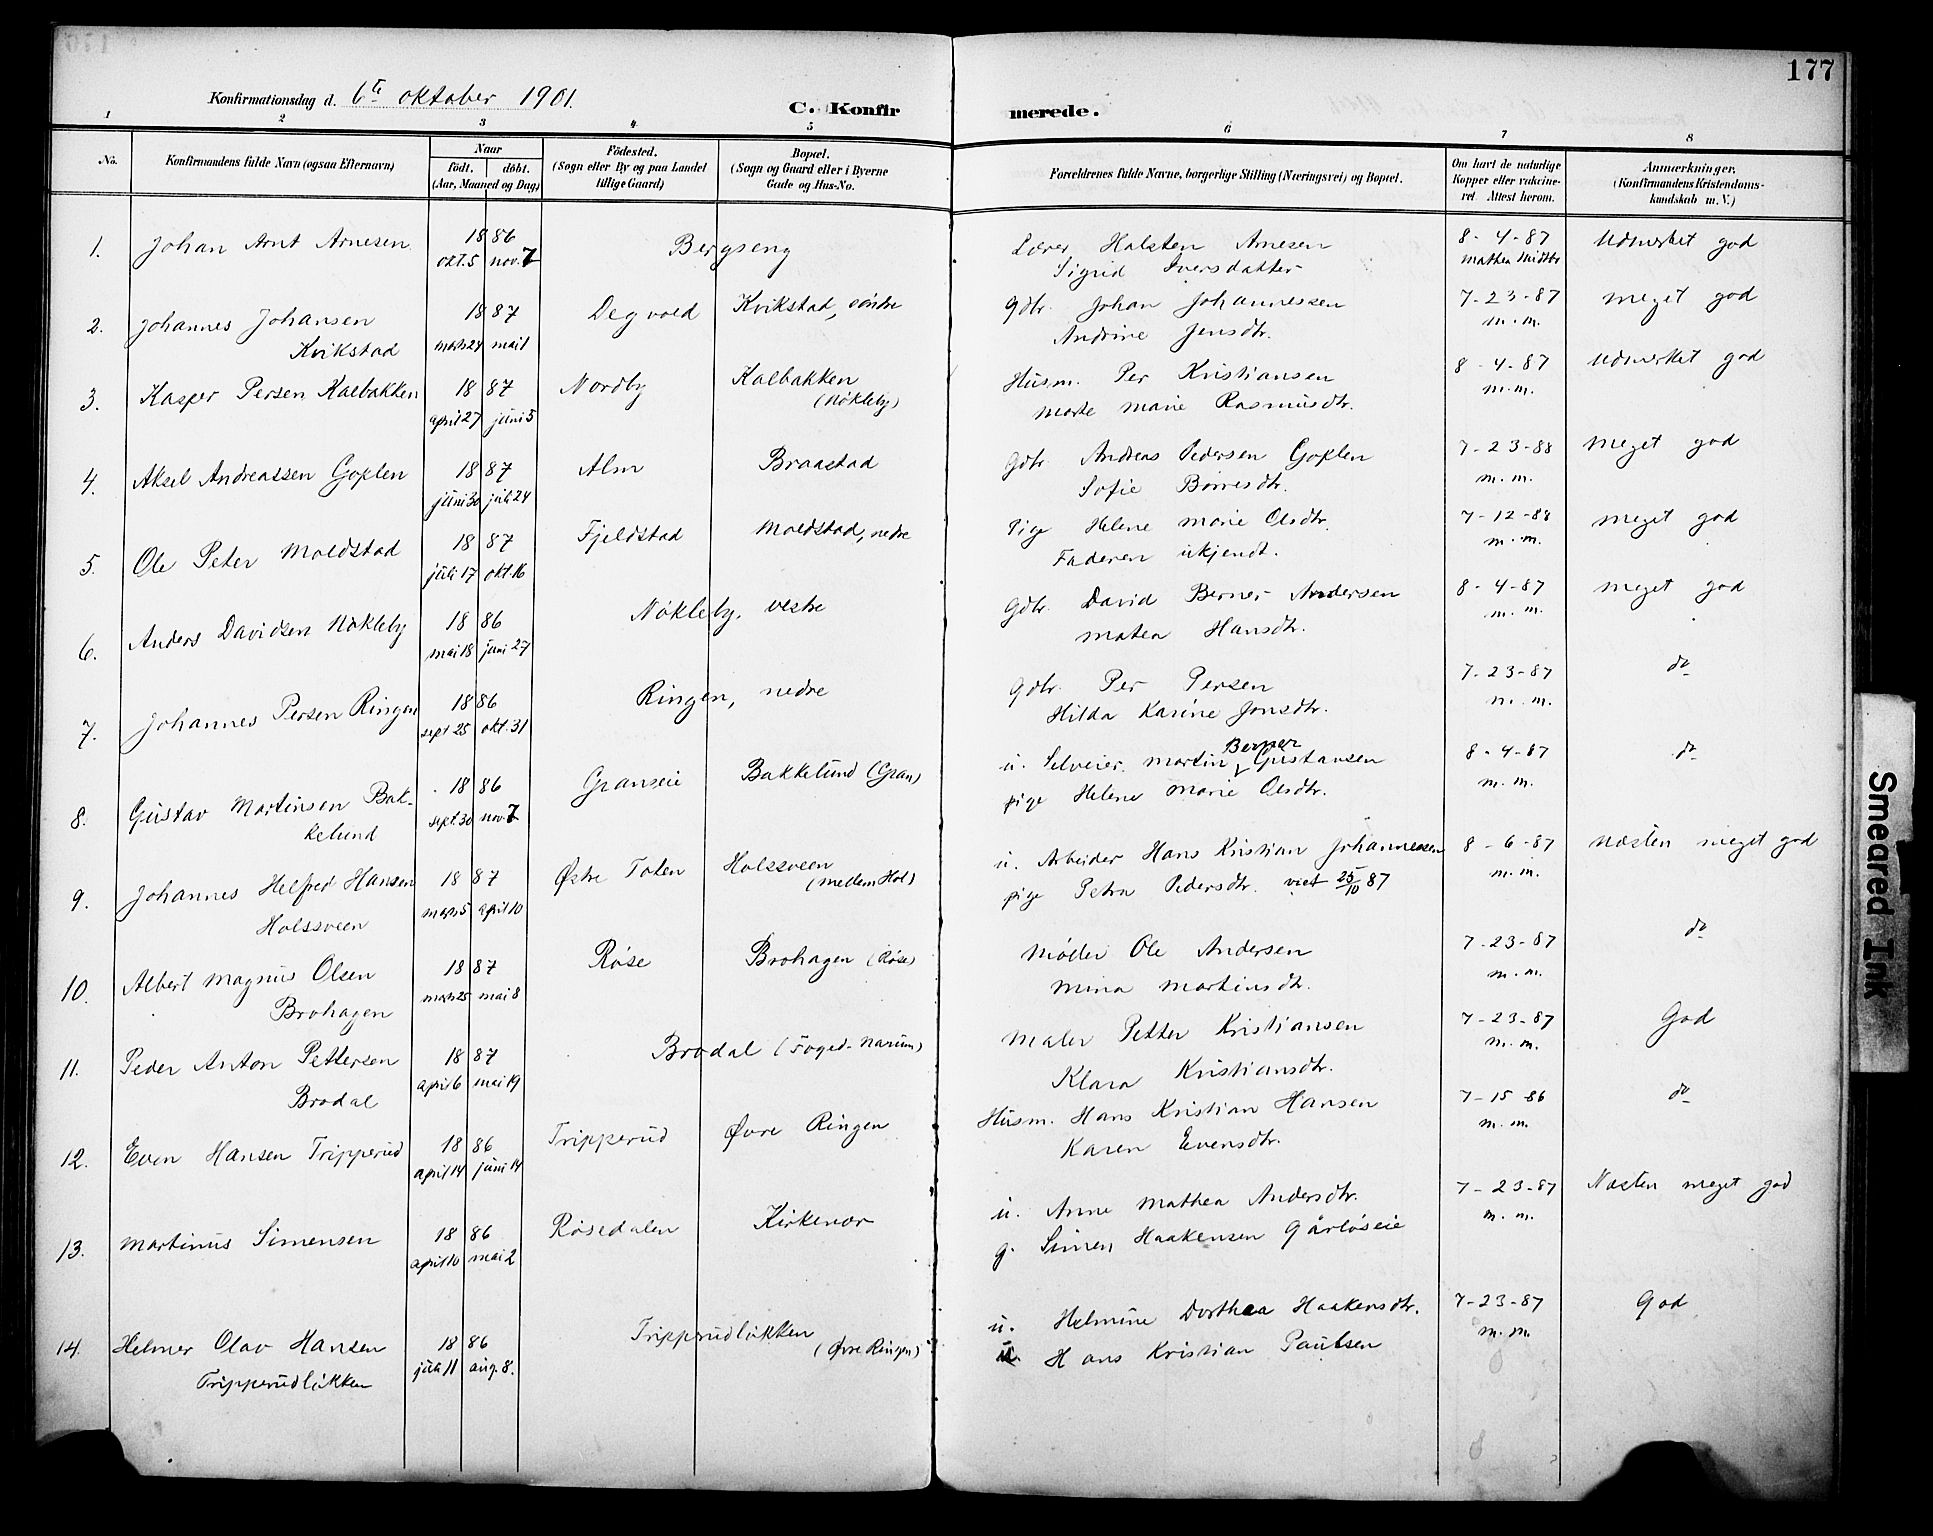 177
Konfirmationsdag d. 6te oktober 1901.
C. Konfirmerede.
1 2 3 4 5 6 7 8
No.
Konfirmandens fulde Navn (ogsaa Efternavn)
Naar
födt. döbt.
(Aar, Maaned og Dag)
Födested.
(Sogn eller By og paa Landet
tillige Gaard)
Bopæl.
(Sogn og Gaard eller i Byerne
Gade og Hus-No.
Forældrenes fulde Navne, borgerlige Stilling (Næringsvei) og Bopæl.
Om havt de naturlige
Kopper eller vakcine-
ret Attest herom.
Anmærkninger.
(Konfirmandens Kristendoms-
kundskab m. V.)
1. Johan Arnt Arnesen 1886 Bergseng Lærer Halsten Arnesen 8-4-87 Udmerket god
okt. 5 nov. 7 Sigrid Iversdatter mathea Midtbr
2. Johannes Johansen 1887 Degvold Kvikstad, söndre Gdbr. Johan Johannessen 7-23-87 meget god
Kvikstad mars 24 mai 1 Andrine Jensdtr. m.m.
3. Kasper Persen Kalbakken 1887 Nordby Kalbakken Husm. Per Kristiansen 8-4-87 Udmerket god
april 27 juni 5 (Nökleby) Marte Marie Rasmusdtr. m.m.
4. Aksel Andreassen Goplen 1887 Alm Braastad Gdbr Andreas Pedersen Goplen 7-23-88 meget god
juni 30 juli 24 Sofie Börresdtr. m.m.
5. Ole Peter Moldstad 1887 Fjeldstad Moldstad, nedre Pige Helene Marie Olsdtr. 7-12-88 meget god
juli 17 okt. 16 Faderen ukjendt. m.m.
6. Anders Davidsen Nökleby 1886 Nökleby, vestre Gdbr. David Berner Andersen 8-4-87 meget god
mai 18 juni 27 Matea Hansdtr. m.m.
7. Johannes Persen Ringen 1886 Ringen, nedre Gdbr. Per Persen 7-23-87 do
sept 25 okt. 31 Hilda Karine Jonsdtr. m.m.
8. Gustav Martinsen Bak- 1886 Granseie Bakkelund (Gran) u. Selveier. Martin Berner Gustavsen 8-4-87 do
kelund sept. 30 nov. 7 pige Helene Marie Olsdtr. m.m.
9. Johannes Helfred Hansen 1887 Östre Toten Holssveen u. Arbeider Hans Kristian Johannessen 8-6-87 Næsten meget god
Holssveen mars 5 april 10 (mellem Hol) pige Petra Pedersdtr. viet 25/10 87 m.m.
10. Albert Magnus Olsen 1887 Röise Brohagen (Röise) Möller Ole Andersen 7-23-87 do
Brohagen mars 25 mai 8 Mina Martinsdtr. m.m.
11. Peder Anton Pettersen 1887 Brodal (Foged-Narum) Maler Petter Kristiansen 7-23-87 God
Brodal april 6 mai 19 Klara Kristiansdtr. m.m.
12. Even Hansen Tripperud 1886 Tripperud Øvre Ringen Husm. Hans Kristian Hansen 7-15-86 do
april 14 juni 14 Karen Evensdtr. m.m.
13. Martinus Simensen 1886 Rösedalen Kirkenær u. Anne Mathea Andersdtr. 7-23-87 Næsten meget god
april 10 mai 2 g. Simen Haakensen Gårlöseie m.m.
14. Helmer Olav Hansen 1886 Tripperudlökken u. Helmine Dorthea Haakensdtr. 7-23-87 God
Tripperudlökken juli 11 aug. 8. (Øvre Ringen) u. Hans Kristian Paulsen m.m.
Smeared Ink